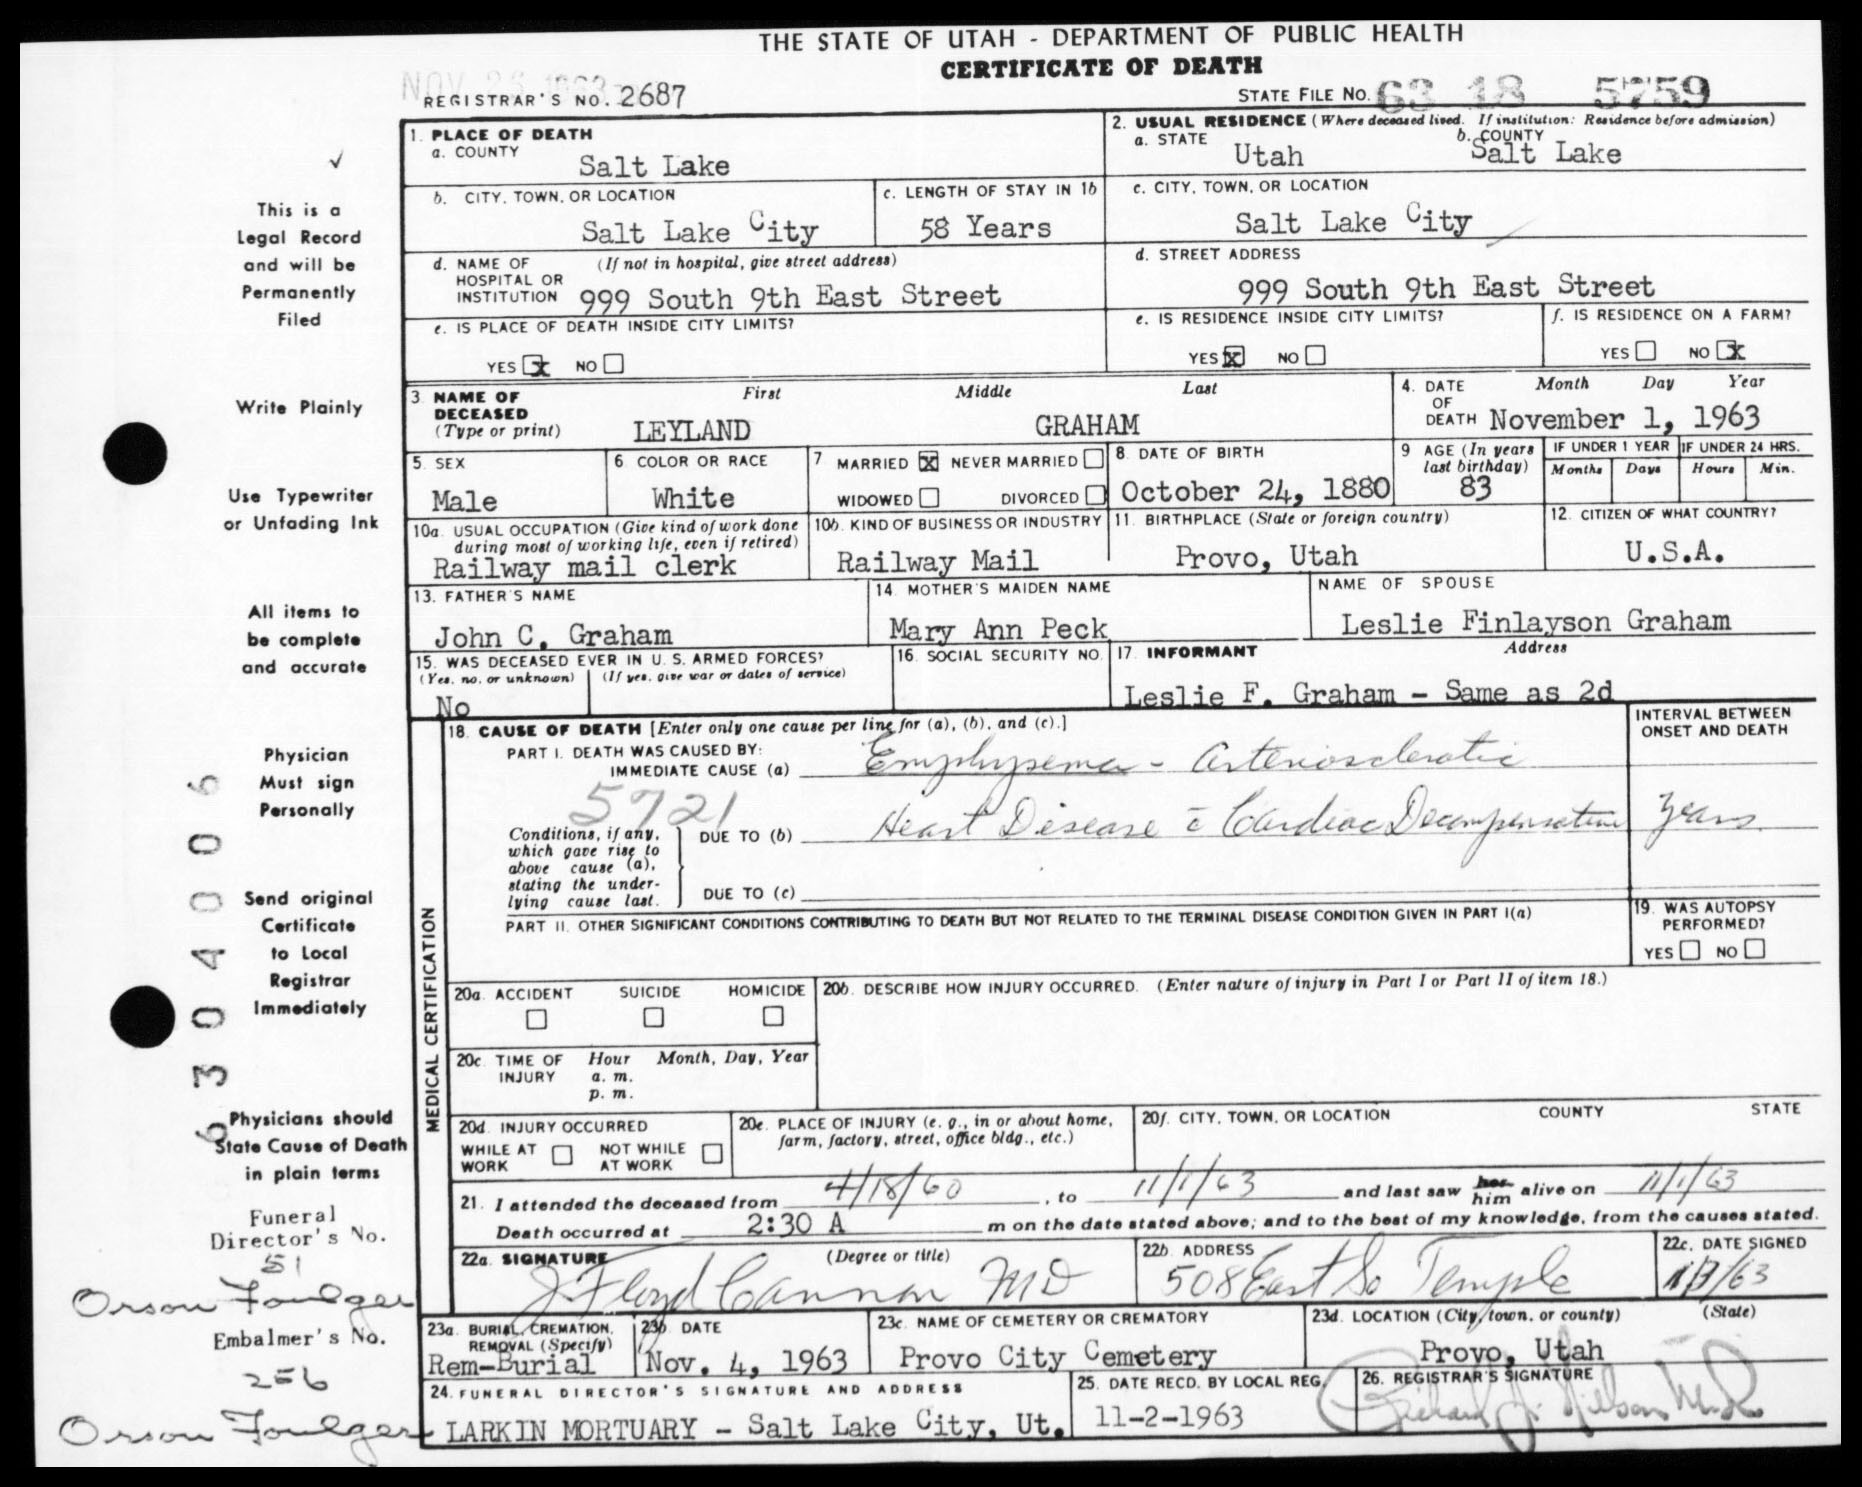 THE STATE OF UTAH - DEPARTMENT OF PUBLIC HEALTH
CERTIFICATE OF DEATH
NOV 26 1963
REGISTRAR'S NO. 2687
STATE FILE NO. 63 18 5759
1. PLACE OF DEATH
a. COUNTY
Salt Lake
2. USUAL RESIDENCE (Where deceased lived. If institution: Residence before admission)
a. STATE
Utah
b. COUNTY
Salt Lake
b. CITY, TOWN, OR LOCATION
Salt Lake City
c. LENGTH OF STAY IN 1b
58 Years
c. CITY, TOWN, OR LOCATION
Salt Lake City
d. NAME OF HOSPITAL OR INSTITUTION
(If not in hospital, give street address)
999 South 9th East Street
d. STREET ADDRESS
999 South 9th East Street
e. IS PLACE OF DEATH INSIDE CITY LIMITS?
YES X NO
e. IS RESIDENCE INSIDE CITY LIMITS?
YES X NO
f. IS RESIDENCE ON A FARM?
YES NO X
3. NAME OF DECEASED
(Type or print)
First Middle Last
LEYLAND GRAHAM
4. DATE OF DEATH
Month Day Year
November 1, 1963
5. SEX
Male
6. COLOR OR RACE
White
7. MARRIED X NEVER MARRIED
WIDOWED DIVORCED
8. DATE OF BIRTH
October 24, 1880
9 AGE (In years last birthday)
83
IF UNDER 1 YEAR
Months Days
IF UNDER 24 HRS.
Hours Min.
10a. USUAL OCCUPATION (Give kind of work done during most of working life, even if retired)
Railway mail clerk
10b. KIND OF BUSINESS OR INDUSTRY
Railway Mail
11. BIRTHPLACE (State or foreign country)
Provo, Utah
12. CITIZEN OF WHAT COUNTRY?
U.S.A.
13. FATHER'S NAME
John C. Graham
14. MOTHER'S MAIDEN NAME
Mary Ann Peck
NAME OF SPOUSE
Leslie Finlayson Graham
15. WAS DECEASED EVER IN U. S. ARMED FORCES?
(Yes, no, or unknown) (If yes, give war or dates of service)
No
16. SOCIAL SECURITY NO.
17. INFORMANT Address
Leslie F. Graham - Same as 2d
MEDICAL CERTIFICATION
18. CAUSE OF DEATH [Enter only one cause per line for (a), (b), and (c).]
INTERVAL BETWEEN ONSET AND DEATH
PART I. DEATH WAS CAUSED BY:
IMMEDIATE CAUSE (a) Emphysema - Arteriosclerotic
5721
Conditions, if any, which gave rise to above cause (a), stating the underlying cause last.
DUE TO (b) Heart Disease c̄ Cardiac Decompensation Years
DUE TO (c)
PART II. OTHER SIGNIFICANT CONDITIONS CONTRIBUTING TO DEATH BUT NOT RELATED TO THE TERMINAL DISEASE CONDITION GIVEN IN PART I(a)
19. WAS AUTOPSY PERFORMED?
YES NO
20a. ACCIDENT SUICIDE HOMICIDE
20b. DESCRIBE HOW INJURY OCCURRED. (Enter nature of injury in Part I or Part II of item 18.)
20c. TIME OF INJURY
Hour Month, Day, Year
a. m.
p. m.
20d. INJURY OCCURRED
WHILE AT WORK NOT WHILE AT WORK
20e. PLACE OF INJURY (e. g., in or about home, farm, factory, street, office bldg., etc.)
20f. CITY, TOWN, OR LOCATION COUNTY STATE
21. I attended the deceased from 4/18/60, to 11/1/63 and last saw her him alive on 11/1/63
Death occurred at 2:30 A m on the date stated above; and to the best of my knowledge, from the causes stated.
22a. SIGNATURE (Degree or title)
J. Floyd Cannon MD
22b. ADDRESS
508 East So Temple
22c. DATE SIGNED
11/ /63
23a. BURIAL, CREMATION, REMOVAL (Specify)
Rem-Burial
23b. DATE
Nov. 4, 1963
23c. NAME OF CEMETERY OR CREMATORY
Provo City Cemetery
23d. LOCATION (City, town, or county) (State)
Provo, Utah
24. FUNERAL DIRECTOR'S SIGNATURE AND ADDRESS
LARKIN MORTUARY - Salt Lake City, Ut.
25. DATE RECD. BY LOCAL REG.
11-2-1963
26. REGISTRAR'S SIGNATURE
Richard J. Nilson M.D.
This is a
Legal Record
and will be
Permanently
Filed
Write Plainly
Use Typewriter
or Unfading Ink
All items to
be complete
and accurate
Physician
Must sign
Personally
Send original
Certificate
to Local
Registrar
Immediately
Physicians should
State Cause of Death
in plain terms
6304006
Funeral
Director's No.
51
Orson Foulger
Embalmer's No.
256
Orson Foulger